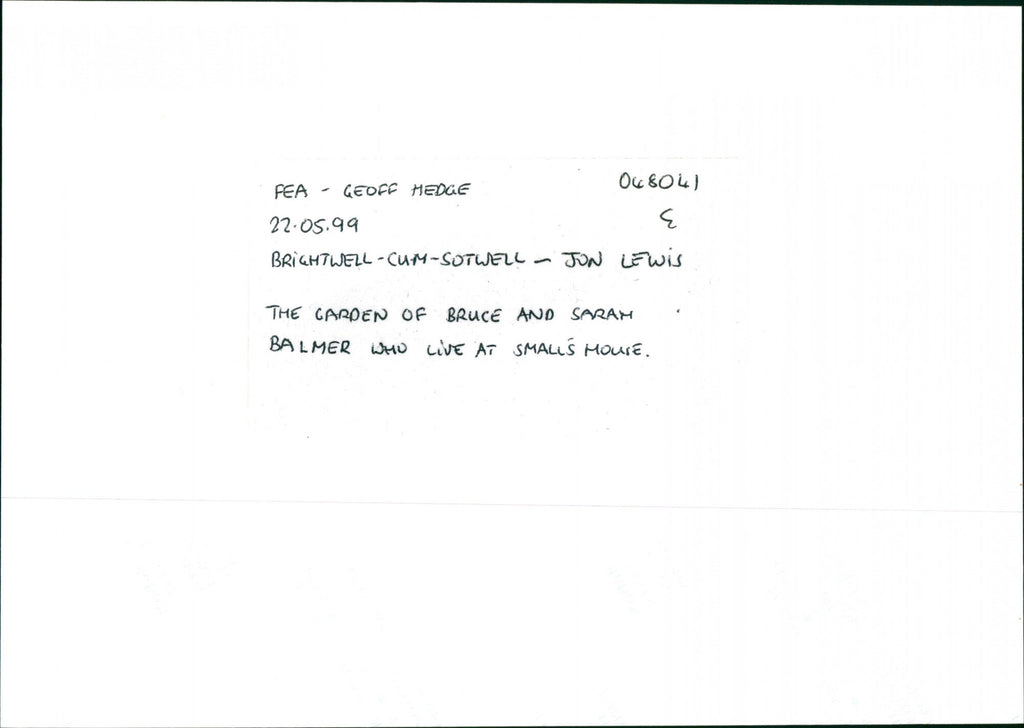 FEA - GEOFF HEDGE 048041
22.05.99 E
BRIGHTWELL-CUM-SOTWELL - JON LEWIS
THE GARDEN OF BRUCE AND SARAH
BALMER WHO LIVE AT SMALL'S HOUSE.